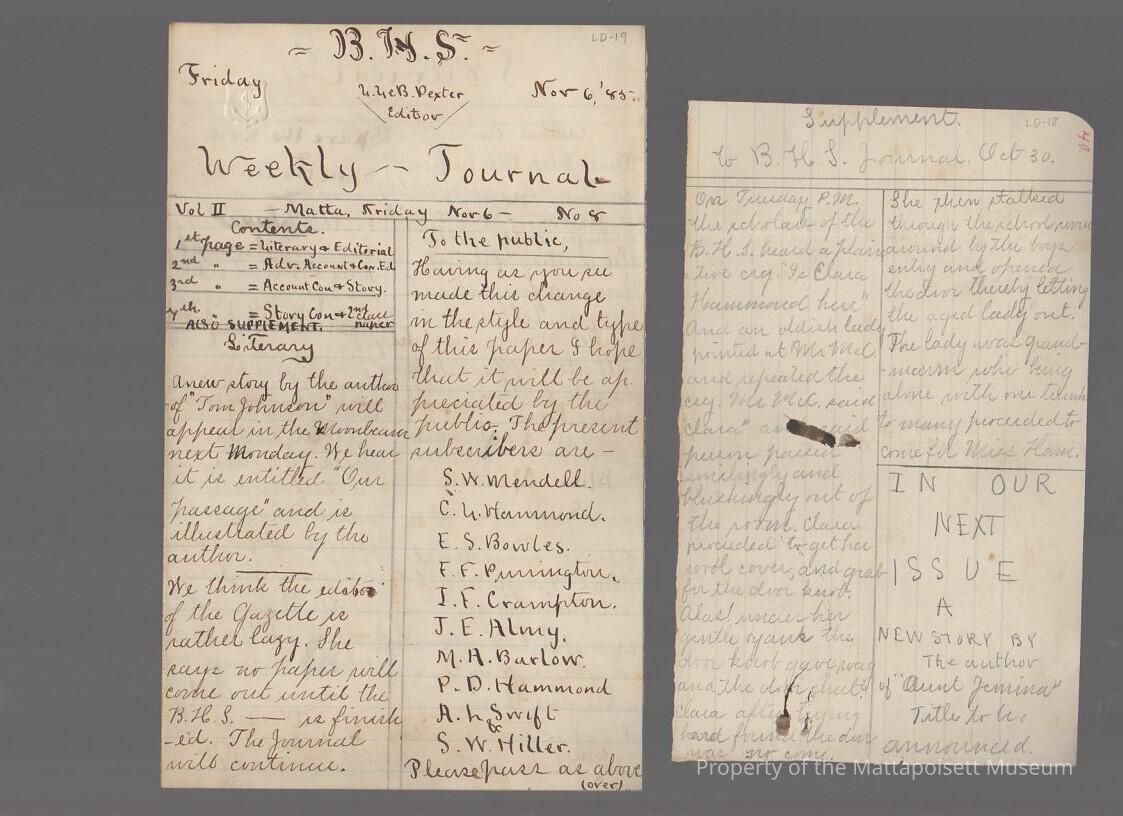 ~ B.H.S. ~
LD-19
Friday
Nov 6, '85.
B. Dexter
Editor
Weekly — Journal
Vol II — Matta, Friday Nov 6 — No 8
Contents.
1st page = Literary & Editorial
2nd " = Adv. Account & Con. Ed
3rd " = Account Con & Story.
4th " = Story Con & 2nd class
paper
ALSO SUPPLEMENT.
Literary
A new story by the author
of "Tom Johnson" will
appear in the Moonbeam
next Monday. We hear
it is entitled "Our
Passage" and is
illustrated by the
author.
We think the editor
of the Gazette is
rather lazy. She
says no paper will
come out until the
B.H.S. — is finish
-ed. The Journal
will continue.
To the public,
Having as you see
made this change
in the style and type
of this paper I hope
that it will be ap
preciated by the
public. The present
subscribers are —
S. W. Mendell.
C. H. Hammond.
E. S. Bowles.
F. F. Purrington.
I. F. Crampton.
J. E. Almy.
M. A. Barlow.
P. D. Hammond
A. L. Swift
&
S. W. Hiller.
Please pass as above
(over)
Supplement.
LD-18
40
to B.H.S. Journal. Oct 30.
On Tuesday P.M.
the scholars of the
B.H.S. heard a plain
tive cry "Is Clara
Hammond here"
And an oldish lady
pointed at Mr McC.
and repeated the
cry. Mr McC. said
"Clara" and said
person passed
smilingly and
blushingly out of
the room. Clara
proceded to get her
wool cover, and grab
for the door knob.
Alas! under her
gentle yank the
door knob gave way
and the door shut.
Clara after trying
hard found the door
was no come.
She then stalked
through the school room
around by the boys
entry and opened
the door thereby letting
the aged lady out.
The lady was grand-
-marm who being
alone with one trunk
to many proceded to
come for Miss Ham.
IN OUR
NEXT
ISSUE
A
NEW STORY BY
The author
of "Aunt Jemima"
Title to be
announced.
Property of the Mattapoisett Museum